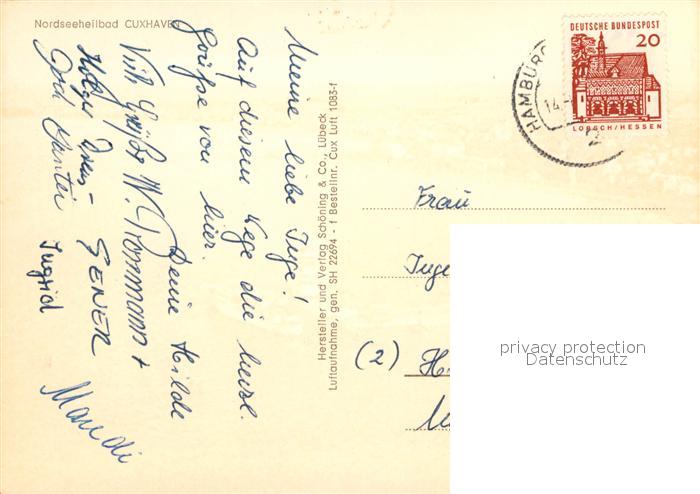 Nordseeheilbad CUXHAVEN
Meine liebe Inge!
Auf diesem Wege die herzl.
Grüße von hier.
Deine Hilde
Viele Grüße W. Trommann +
GENER
Ingrid
Mandi
Hersteller und Verlag Schöning & Co., Lübeck
Luftaufnahme, gen. SH 22694 - f Bestellnr. Cux Luft 1083-f
DEUTSCHE BUNDESPOST
20
LORSCH/HESSEN
HAMBURG
14.
2
Frau
Inge
(2) H
privacy protection
Datenschutz